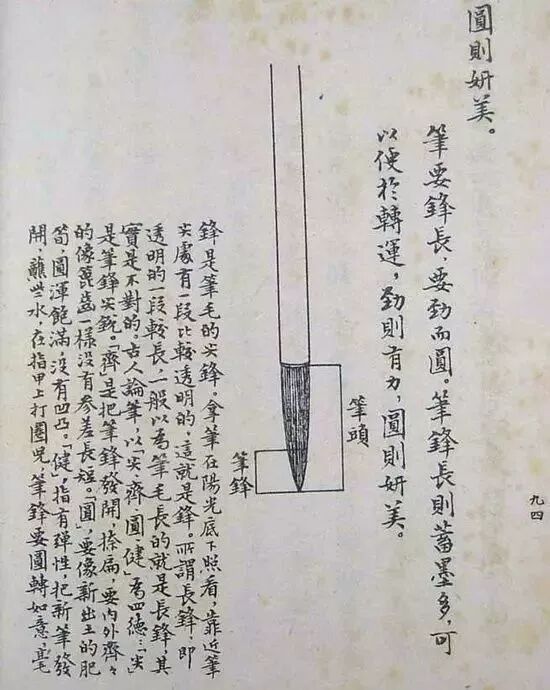 圓則妍美。
筆要鋒長、要勁而圓。筆鋒長則蓄墨多，可
以便於轉運，勁則有力，圓則妍美。
筆頭
筆鋒
鋒是筆毛的尖鋒。拿筆在陽光底下照看，靠近筆
尖處有一段比較透明的，這就是鋒。所謂長鋒，即
透明的一段較長，一般以為筆毛長的就是長鋒，其
實是不對的。古人論筆，以「尖、齊、圓、健」為四德：「尖」
是筆鋒尖銳。「齊」是把筆鋒發開，捺扁，要內外齊々
的像篦齒一樣沒有參差長短。「圓」要像新出土的肥
筍，圓渾飽滿，沒有凹凸。「健」，指有彈性，把新筆發
開，蘸些水在指甲上打圈兒，筆鋒要圓轉如意，毫
九四